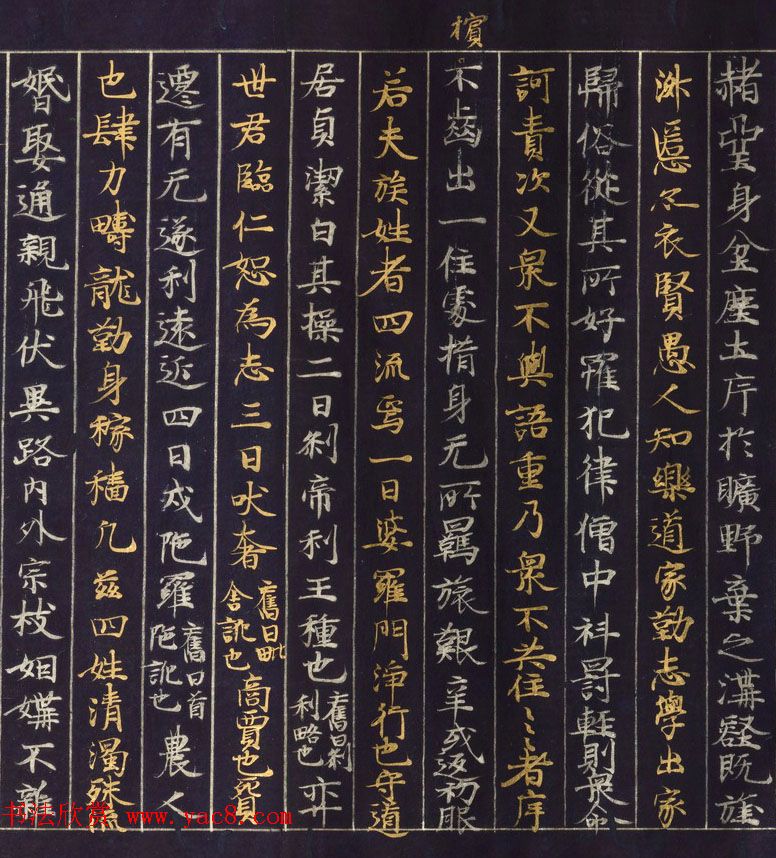 赭堊身坌塵土斥於曠野棄之溝壑既旌
淋慝衣賢愚人知樂道家勤志學出家
歸俗從其所好罹犯律僧中科罰輕則衆命
訶責次又衆不與語重乃衆不共住〻〻者斥
擯
不齒出一住處措身无所羈旅艱辛或返初服
若夫族姓者四流焉一曰婆羅門淨行也守道
居貞潔白其操二曰刹帝利王種也舊曰刹利略也弈
世君臨仁恕為志三曰吠奢舊曰毗舍訛也商賈也貿
遷有无遂利遠近四曰戍陁羅舊曰首陁訛也農人
也肆力疇龍勤身稼穡凡茲四姓清濁殊流
婚娶通親飛伏異路內外宗枝姻媾不雜
书法欣赏 www.yac8.com